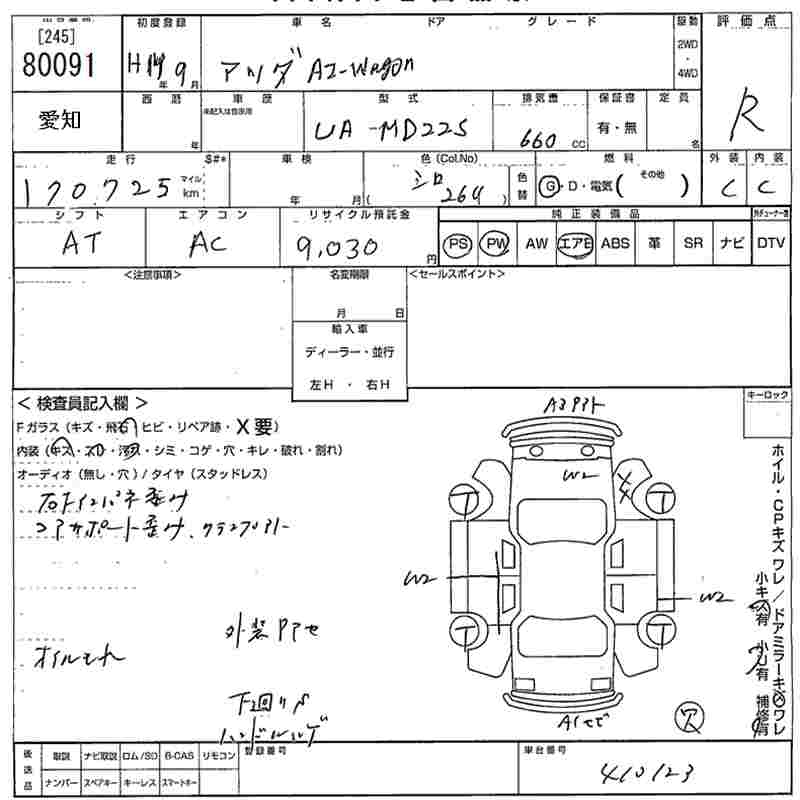 [245]
80091
初度登録
車名
ドア
グレード
駆動
評価点
H14年9月
AZ-Wagon
2WD
・
4WD
R
愛知
西暦
年
車歴
未記入は自家用
型式
UA-MD22S
排気量
660 cc
保証書
有・無
定員
名
走行
S#*
170,725
マイル
km
車検
年 月
色(Col.No)
シロ
26U
色替
燃料
G・D・電気( その他 )
外装
C
内装
C
シフト
AT
エアコン
AC
リサイクル預託金
9,030円
純正装備品
PS PW AW エアB ABS 革 SR ナビ DTV
<注意事項>
名変期限
月 日
輸入車
ディーラー・並行
左H ・ 右H
<セールスポイント>
<検査員記入欄>
キーロック
Fガラス(キズ・飛石・ヒビ・リペア跡・X要)
内装(キズ・スレ・汚れ・シミ・コゲ・穴・キレ・破れ・割れ)
オーディオ(無し・穴)/タイヤ(スタッドレス)
コアサポート歪み、
外装
オイルもれ
下回りサビ
W2
W2
W2
T
T
T
T
穴
ホイル・CPキズワレ/ドアミラーキズワレ
小キズ有 小U有 補修有
後送品
取説 ナビ取説 ロム/SD B-CAS リモコン
ナンバー スペアキー キーレス スマートキー
登録番号
車台番号
410123